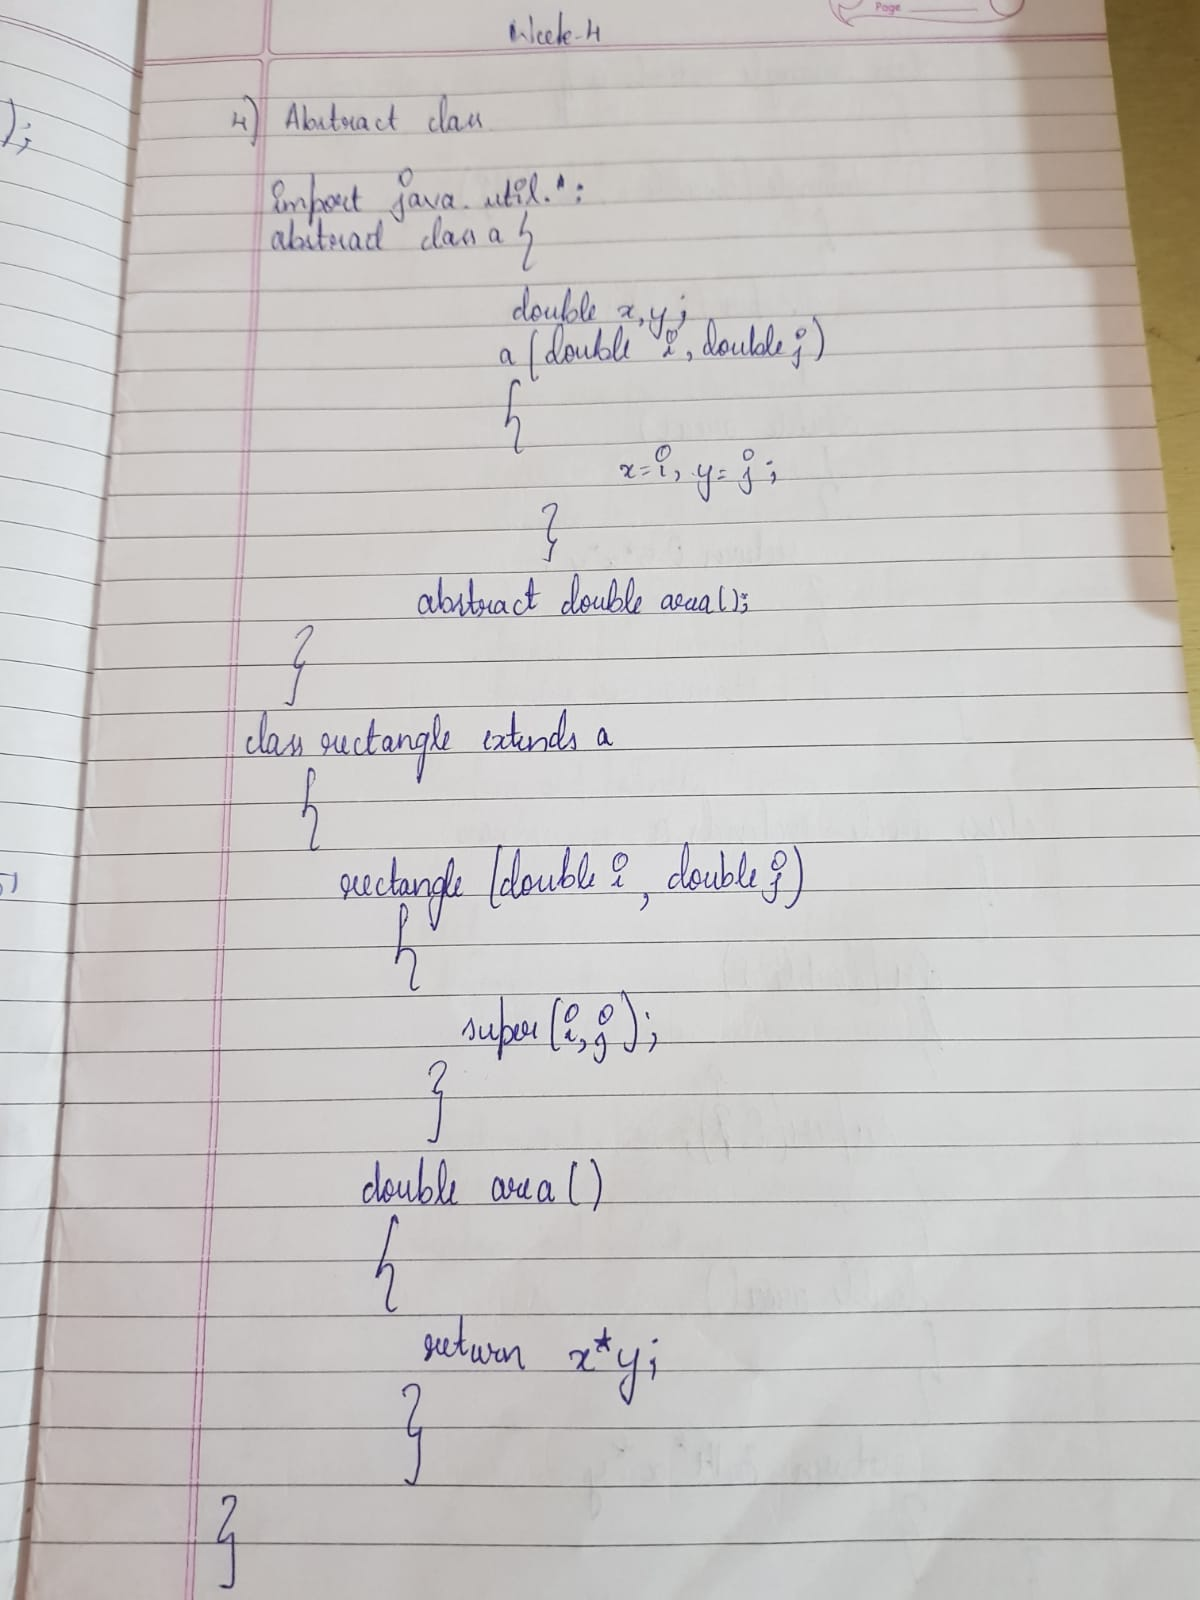 Page
Week-4
);
4) Abstract class
import java.util.*;
abstract class a {
double x,y;
a (double i, double j)
{
x=i, y=j;
}
abstract double area();
}
class rectangle extends a
{
rectangle (double i, double j)
{
super(i,j);
}
double area()
{
return x*y;
}
}